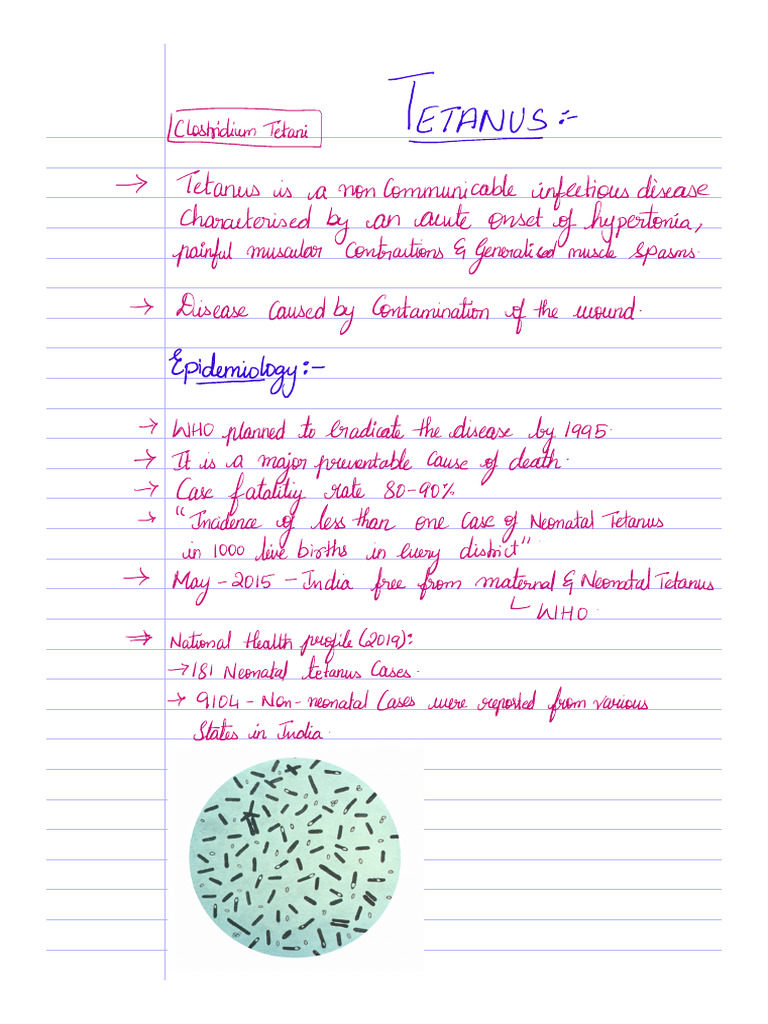 TETANUS:-
Clostridium Tetani
→ Tetanus is a non Communicable infectious disease
Characterised by an acute onset of hypertonia,
painful muscular Contractions & Generalised muscle spasms.
→ Disease Caused by Contamination of the wound.
Epidemiology:-
→ WHO planned to Eradicate the disease by 1995.
→ It is a major preventable Cause of death.
→ Case fatalitiy rate 80-90%
→ "Incidence of less than one Case of Neonatal Tetanus
in 1000 live births in every district"
→ May - 2015 - India free from maternal & Neonatal Tetanus
WHO.
⇒ National Health profile (2019):
→ 181 Neonatal tetanus Cases.
→ 9104 - Non-neonatal Cases were reported from various
States in India.